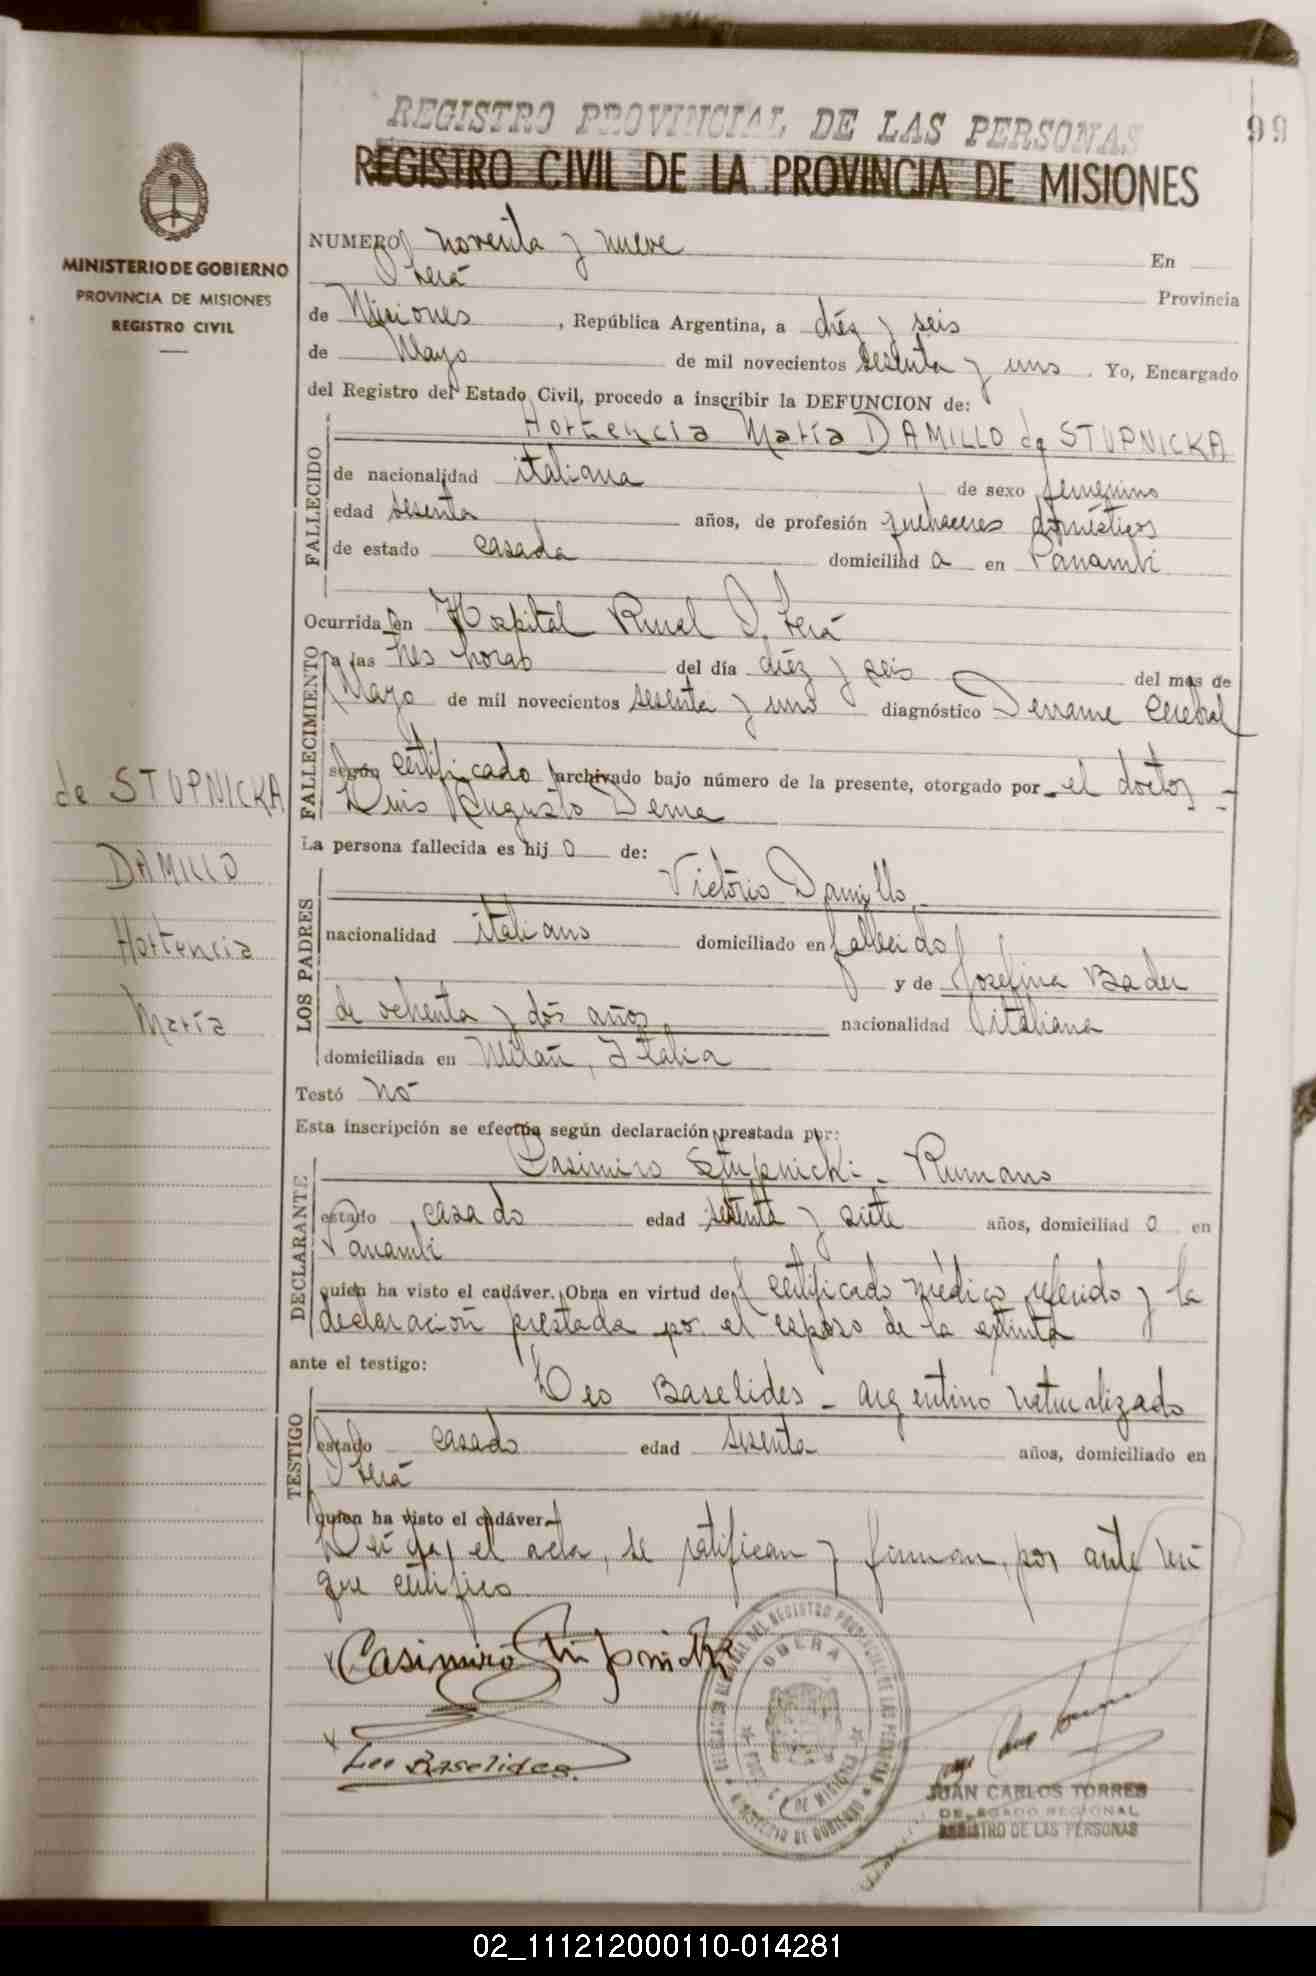 REGISTRO PROVINCIAL DE LAS PERSONAS
99
REGISTRO CIVIL DE LA PROVINCIA DE MISIONES
MINISTERIO DE GOBIERNO
PROVINCIA DE MISIONES
REGISTRO CIVIL
NUMERO noventa y nueve En
Oberá Provincia
de Misiones, República Argentina, a diéz y seis
de Mayo de mil novecientos sesenta y uno. Yo, Encargado
del Registro del Estado Civil, procedo a inscribir la DEFUNCION de:
Hortencia María DAMILLO de STUPNICKA
FALLECIDO
de nacionalidad italiana de sexo femenino
edad sesenta años, de profesión quehaceres domésticos
de estado casada domiciliad a en Panambí
Ocurrida en Hospital Rural Oberá
FALLECIMIENTO
a las tres horas del día diéz y seis del mes de
Mayo de mil novecientos sesenta y uno diagnóstico Derrame Cerebral
según certificado archivado bajo número de la presente, otorgado por el doctor
Luis Augusto Derna
de STUPNICKA
DAMILLO
Hortencia
María
La persona fallecida es hij a de:
LOS PADRES
Victorio Damillo
nacionalidad italiano domiciliado en fallecido
y de Josefina Bader
de ochenta y dós años nacionalidad italiana
domiciliada en Milán, Italia
Testó nó
Esta inscripción se efectúa según declaración prestada por:
DECLARANTE
Casimiro Stupnicki - Rumano
estado casado edad setenta y siete años, domiciliad o en
Panambí
quien ha visto el cadáver. Obra en virtud del certificado médico referido y la
declaración prestada por el esposo de la extinta
ante el testigo:
TESTIGO
Leo Baselides - argentino naturalizado
estado casado edad sesenta años, domiciliado en
Oberá
quien ha visto el cadáver.-
Leída el acta, se ratifican y firman, por ante mí
que certifico
Casimiro Stupnicki
Leo Baselides.
OBERA
JUAN CARLOS TORRES
DELEGADO REGIONAL
REGISTRO DE LAS PERSONAS
02_111212000110-014281